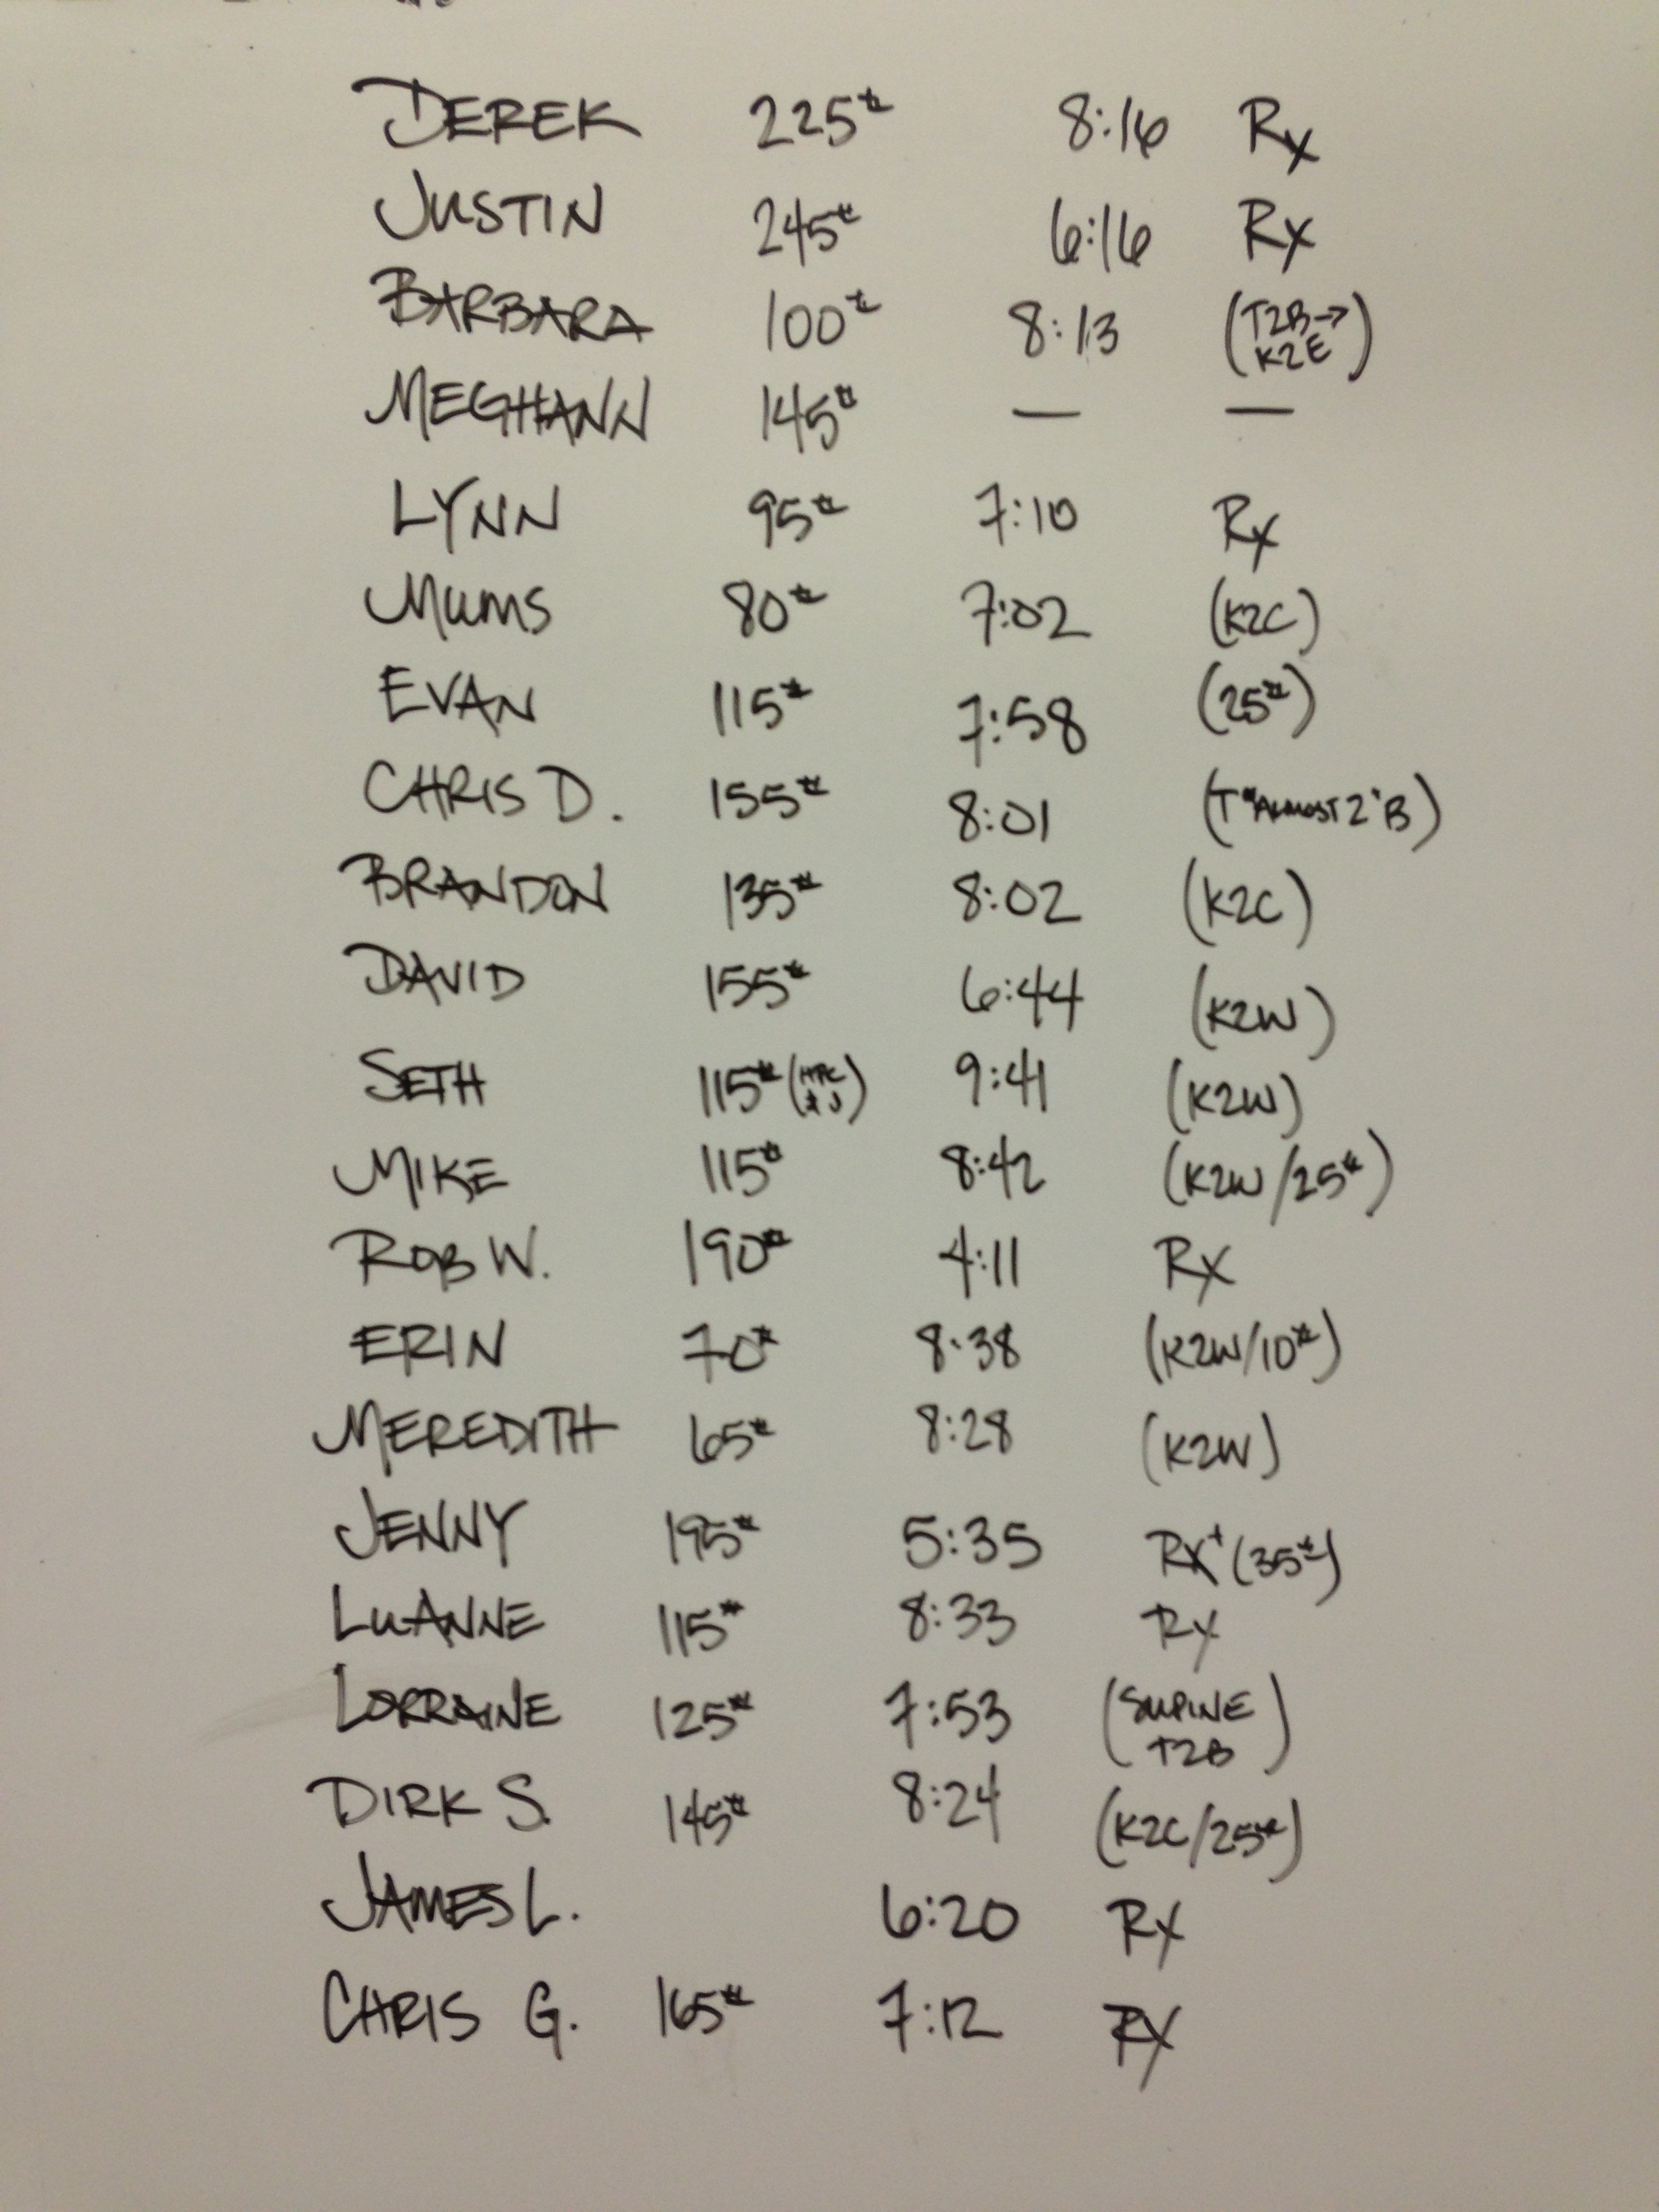 DEREK 225# 8:16 Rx
JUSTIN 245# 6:16 Rx
BARBARA 100# 8:13 (T2B→
K2E)
MEGHANN 145# — —
LYNN 95# 7:10 Rx
MUMS 80# 7:02 (K2C)
EVAN 115# 7:58 (25#)
CHRIS D. 155# 8:01 (T "ALMOST 2" B)
BRANDON 135# 8:02 (K2C)
DAVID 155# 6:44 (K2W)
SETH 115# 9:41 (K2W)
MIKE 115# 8:42 (K2W/25#)
ROB W. 190# 4:11 Rx
ERIN 70# 8:38 (K2W/10#)
MEREDITH 65# 8:28 (K2W)
JENNY 195# 5:35 RX+ (35#)
LUANNE 115# 8:33 Rx
LORRAINE 125# 7:53 (SUPINE
T2B)
DIRK S. 145# 8:24 (K2C/25#)
JAMES L. 6:20 RX
CHRIS G. 165# 7:12 RX